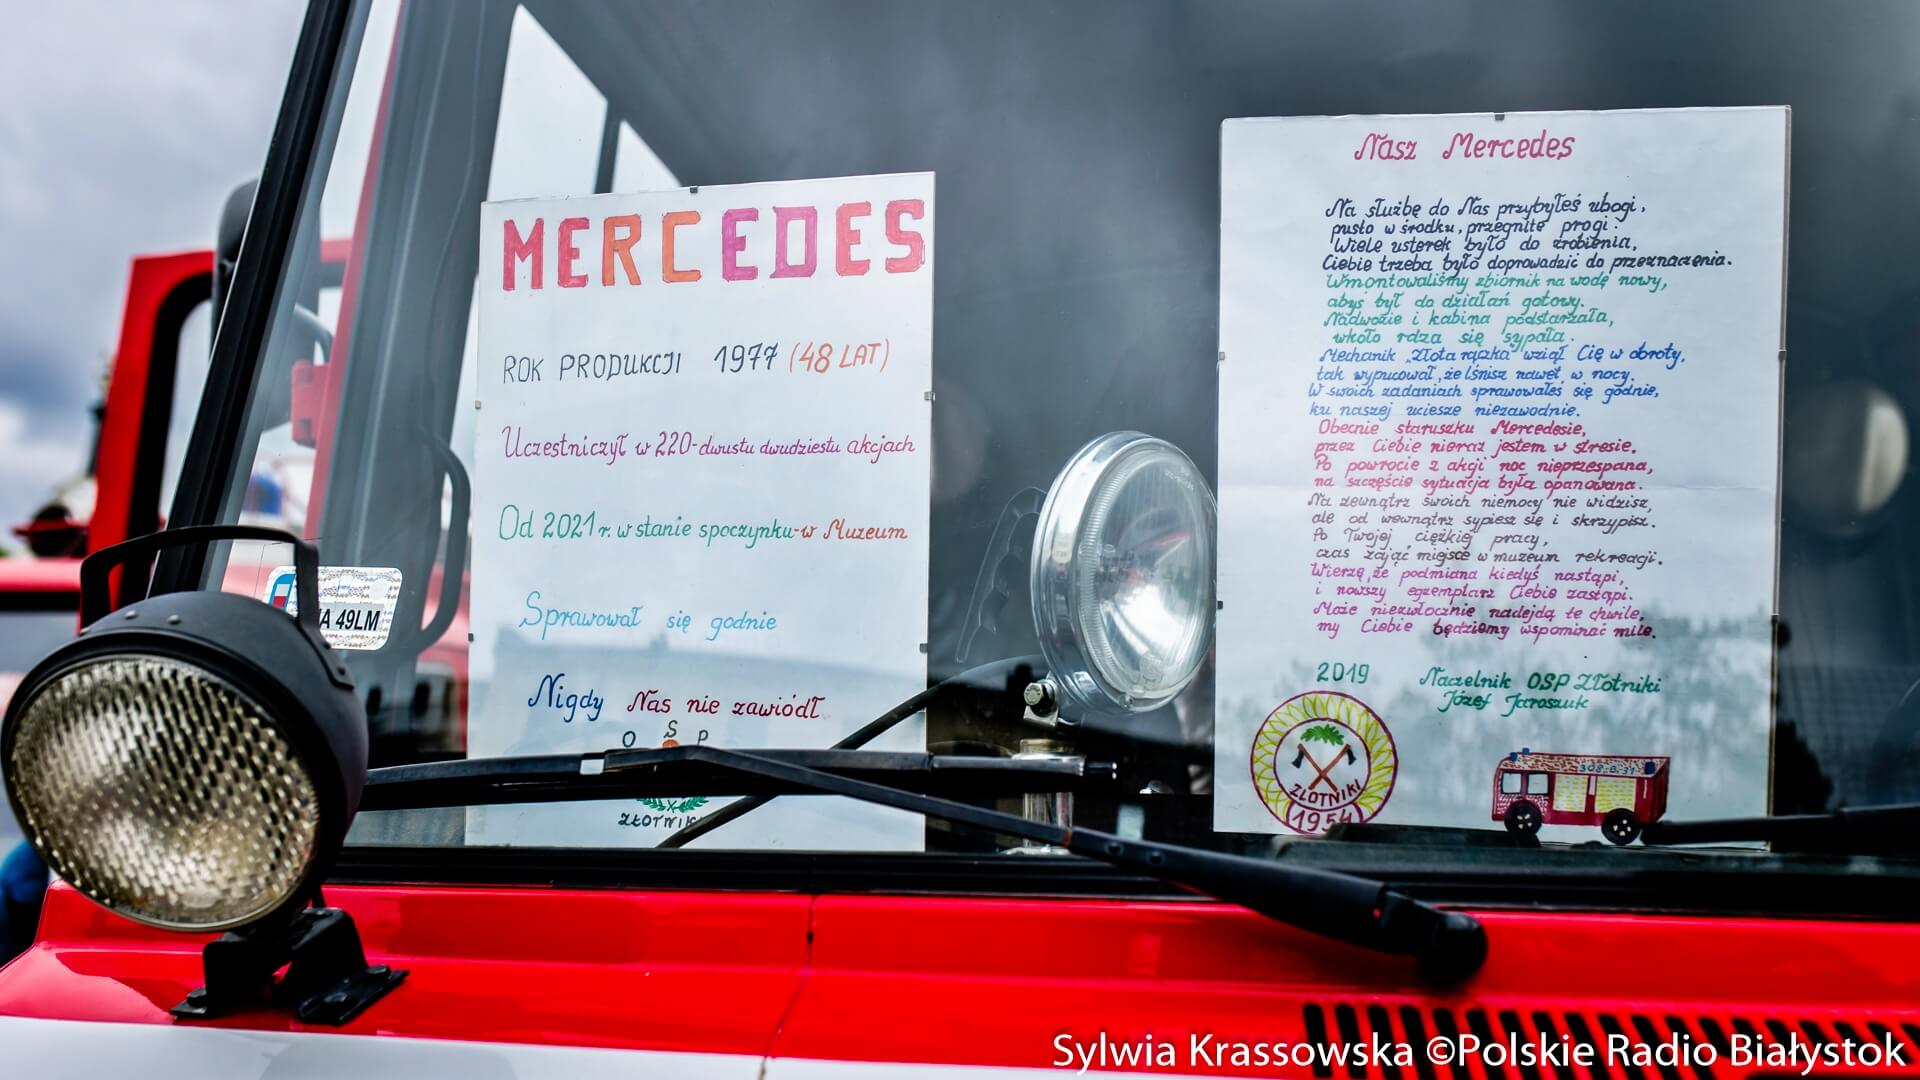 MERCEDES
ROK PRODUKCJI 1977 (48 LAT)
Uczestniczył w 220-dwustu dwudziestu akcjach
Od 2021 r. w stanie spoczynku-w Muzeum
Sprawował się godnie
Nigdy Nas nie zawiódł
O S P
ZŁOTNIKI
A 49LM
Nasz Mercedes
Na służbę do Nas przybyłeś ubogi,
pusto w środku, przegniłe progi.
Wiele usterek było do zrobienia,
Ciebie trzeba było doprowadzić do przeznaczenia.
Wmontowaliśmy zbiornik na wodę nowy,
abyś był do działań gotowy.
Nadwozie i kabina podstarzała,
wkoło rdza się sypała.
Mechanik „Złota rączka" wziął Cię w obroty,
tak wypucował, że lśnisz nawet w nocy.
W swoich zadaniach sprawowałeś się godnie,
ku naszej uciesze niezawodnie.
Obecnie staruszku Mercedesie,
przez Ciebie nieraz jestem w stresie.
Po powrocie z akcji noc nieprzespana,
na szczęście sytuacja była opanowana.
Na zewnątrz swoich niemocy nie widzisz,
ale od wewnątrz sypiesz się i skrzypisz.
Po Twojej ciężkiej pracy,
czas zająć miejsce w muzeum rekreacji.
Wierzę, że podmiana kiedyś nastąpi,
i nowszy egzemplarz Ciebie zastąpi.
Może niezwłocznie nadejdą te chwile,
my Ciebie będziemy wspominać mile.
2019 Naczelnik OSP Złotniki
Józef Jaroszuk
ZŁOTNIKI
1954
308-B-31
Sylwia Krassowska ©Polskie Radio Białystok